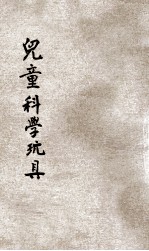 兒童科學玩具